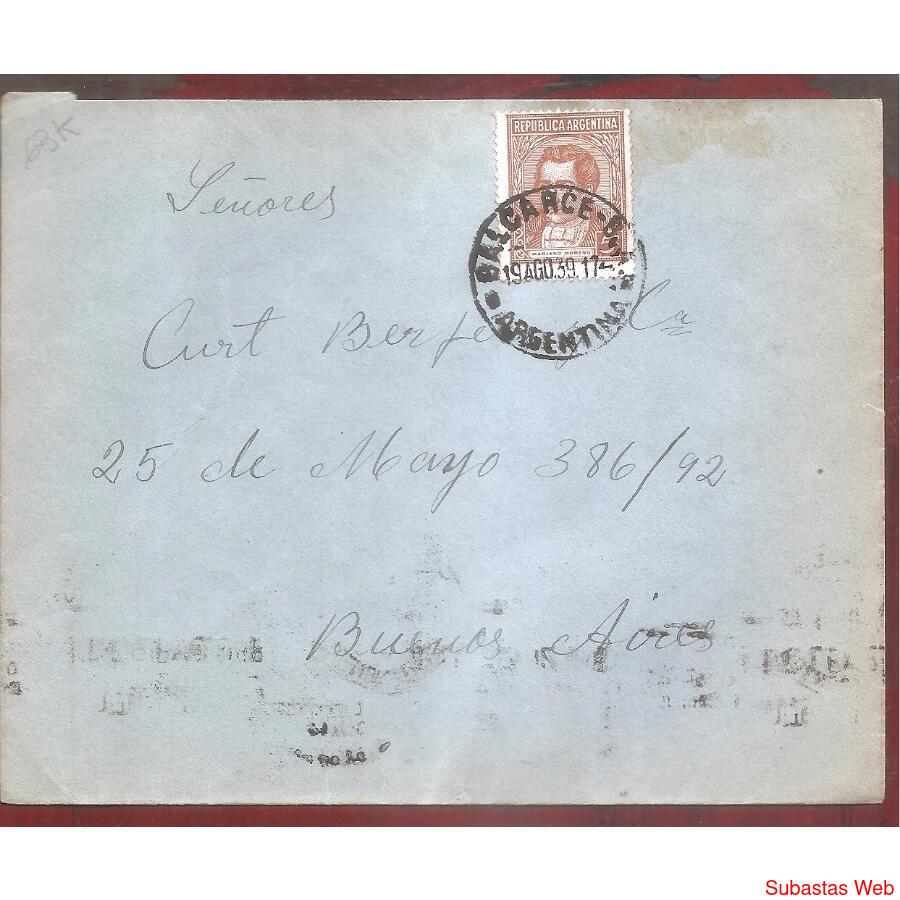 63K
REPUBLICA ARGENTINA
MARIANO MORENO
BALCARCE-Bs
19 AGO.39.17
ARGENTINA
Señores
Curt Berger y Ca
25 de Mayo 386/92
Buenos Aires
Subastas Web